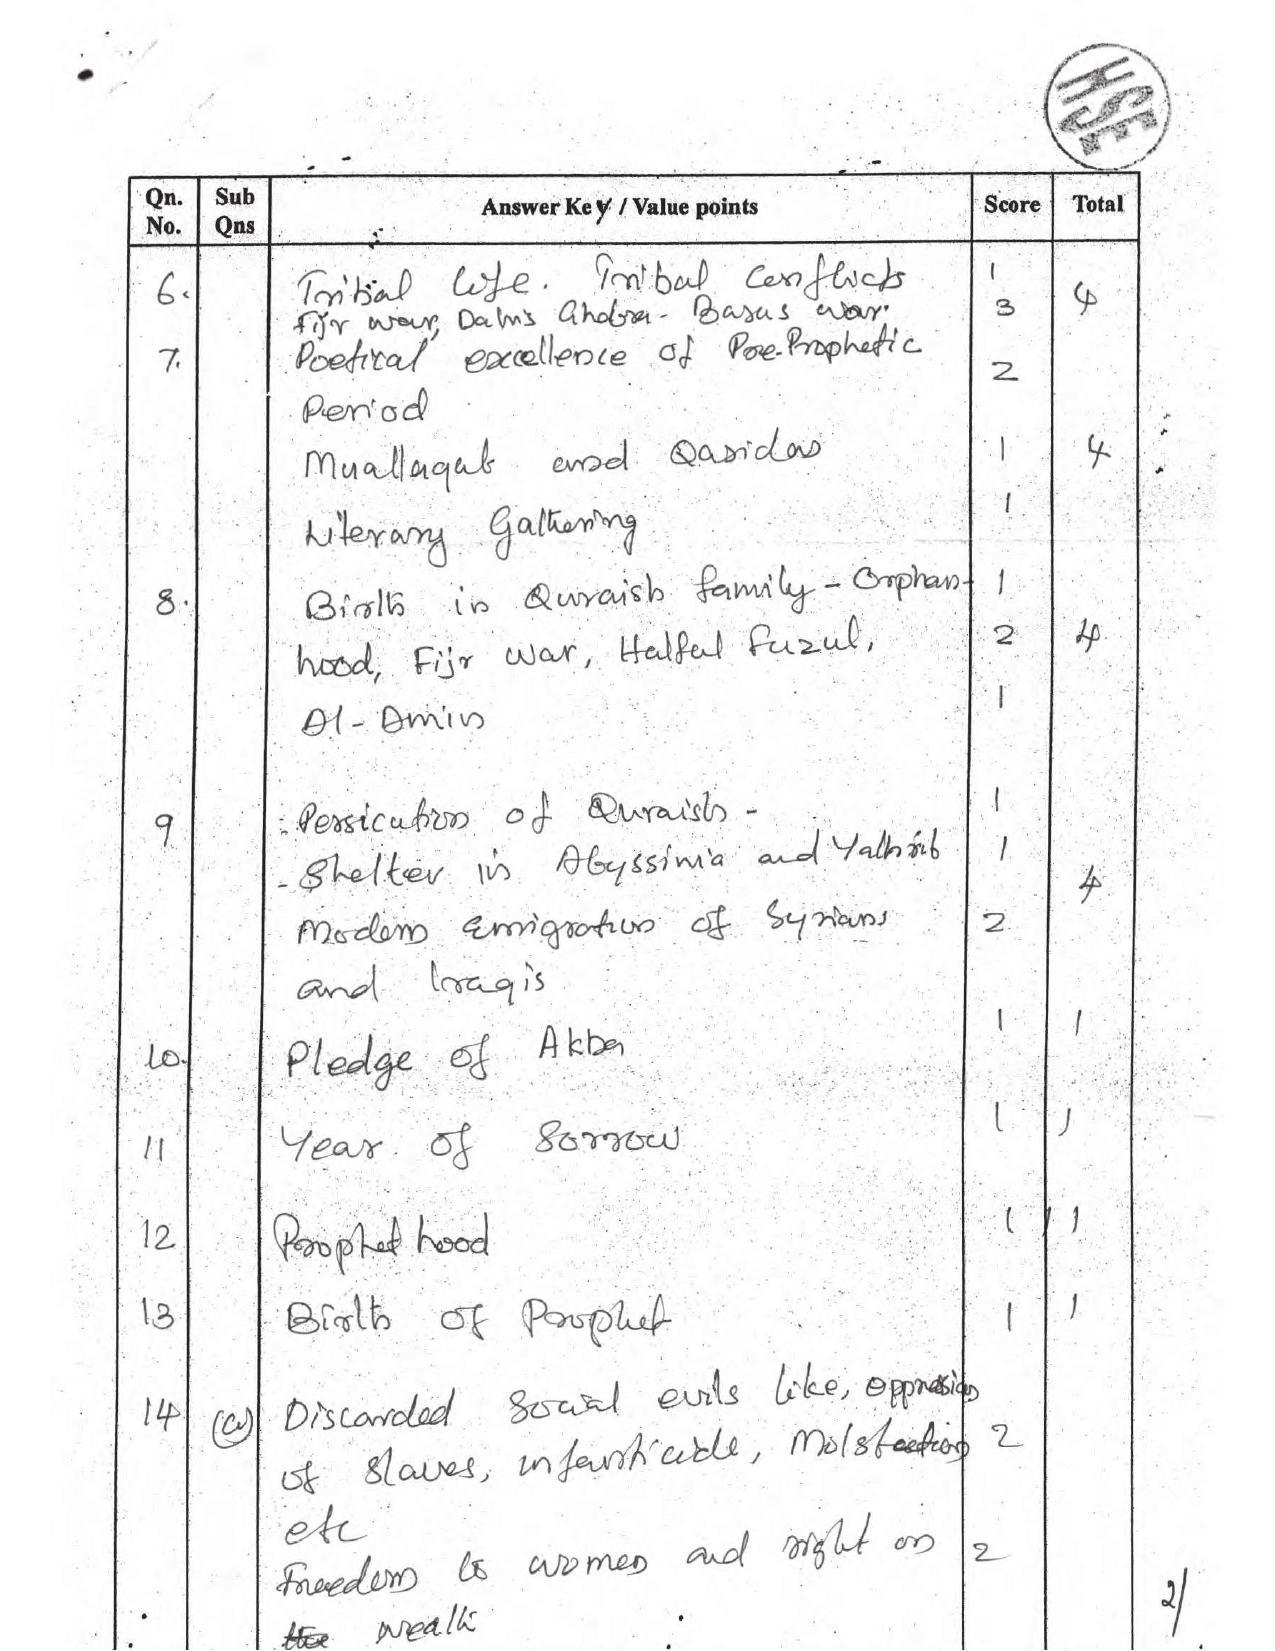 HSE
Qn. No. Sub Qns Answer Key / Value points Score Total
6. Tribal life. Tribal Conflicts 1
Fijr war, Dahis Ghabra - Basus war. 3 4
7. Poetical excellence of Pre-Prophetic 2
Period
Muallaqat and Qasidas 1 4
Literary Gathering 1
8. Birth in Quraish family - Orphan- 1
hood, Fijr war, Halful Fuzul, 2 4
Al-Amin 1
9 - Persicution of Quraish - 1
- Shelter in Abyssinia and Yathrib 1
4
Modern Emigration of Syrians 2
and Iraqis
10. Pledge of Akba 1 1
11 Year of Sorrow 1 1
12 Prophethood 1 1
13 Birth of Prophet 1 1
14 (a) Discarded Social evils like, oppression
of slaves, infanticide, 2
etc
Freedom to women and right on 2
wealth
2/